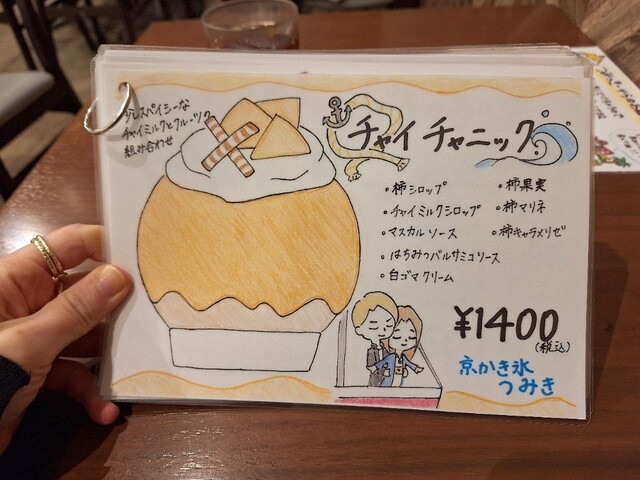 少しスパイシーな
チャイミルクとフルーツの
組み合わせ
チャイチャニック
・柿シロップ
・チャイミルクシロップ
・マスカルソース
・はちみつバルサミコソース
・白ゴマクリーム
・柿果実
・柿マリネ
・柿キャラメリゼ
¥1400
(税込)
京かき氷
つみき